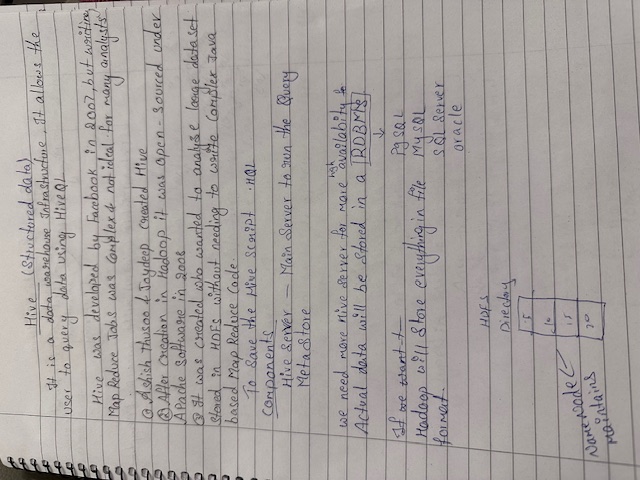 Hive (Structured data)
It is a data warehouse Infrastructure. It allows the
user to query data using HiveQL
Hive was developed by Facebook in 2007, but writing
Map Reduce Jobs was complex & not ideal for many analysts
① Ashish Thusoo & Joydeep created Hive
② After creation in Hadoop it was open-sourced under
APache Software in 2008
③ It was created who wanted to analyse large dataset
stored in HDFS without needing to write complex Java
based Map Reduce Code.
To save the Hive script .HQL
Components
Hive Server — Main Server to run the Query
MetaStore
we need more Hive Server for more high availabity
Actual data will be stored in a RDBMS
↓
If we want t
PgSQL
Hadoop will store everything in file
MySQL
format.
SQL Server
oracle
HDFS
Directory
5
10
15
20
NameNode
maintains